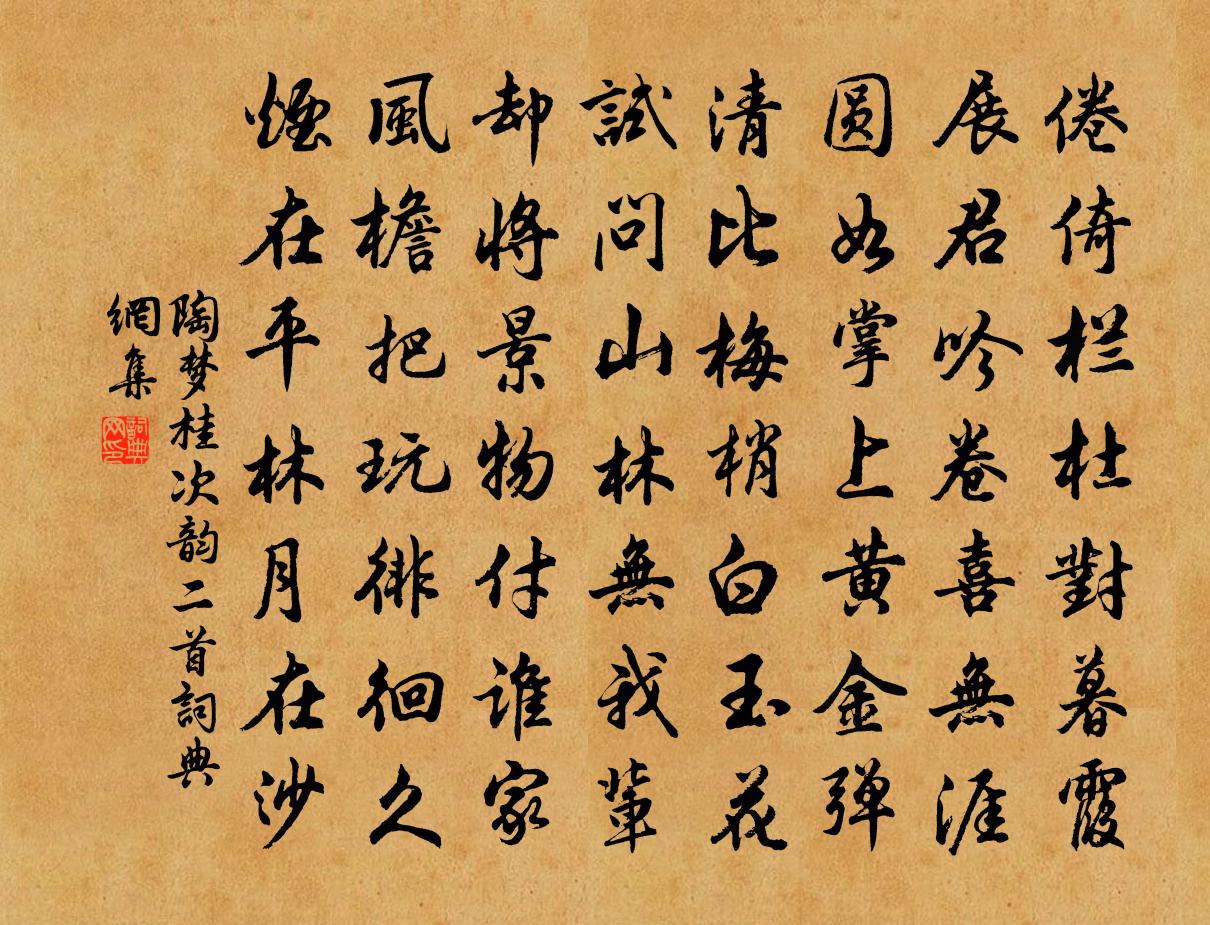 倦倚栏杜對暮霞
展君吟卷喜無涯
圆如掌上黄金弹
清比梅梢白玉花
試問山林無我輩
却將景物付谁家
風檐把玩徘徊久
煙在平林月在沙
陶梦桂次韵二首詞典
網集
詞典
网印